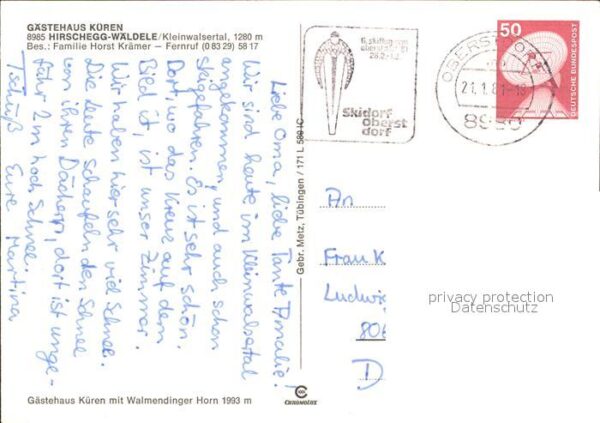 GÄSTEHAUS KÜREN
8985 HIRSCHEGG-WÄLDELE/Kleinwalsertal, 1280 m
Bes.: Familie Horst Krämer – Fernruf (0 83 29) 58 17
Liebe Oma, liebe Tante Amalie!
Wir sind heute im Kleinwalsertal
angekommen, und auch schon
skigefahren. Es ist sehr schön.
Dort, wo das Kreuz auf dem
Bild ist, ist unser Zimmer.
Wir haben hier sehr viel Schnee.
Die Leute Schaufeln den Schnee
von ihren Dächern, dort ist unge-
fähr 2 m hoch Schnee.
Tschüß Eure Martina
Gästehaus Küren mit Walmendinger Horn 1993 m
Gebr. Metz, Tübingen / 171 L 589 IC
CHROMOLUX
Skidorf
oberst
dorf
OBERSTDORF
21.1.81-18
8980
50
DEUTSCHE BUNDESPOST
An
Frau K
Ludwig
806
D
privacy protection
Datenschutz